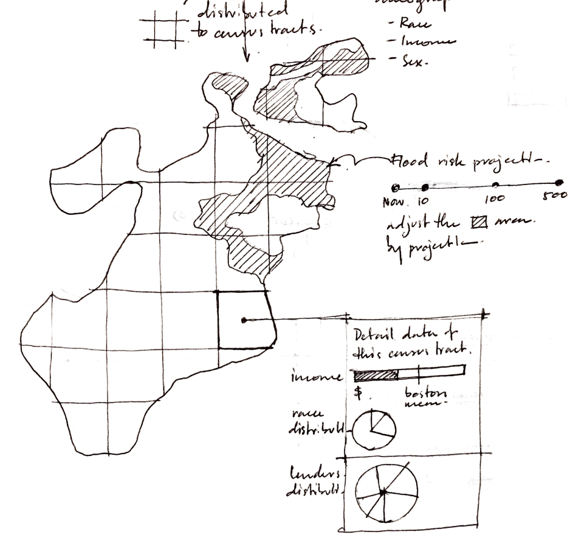 distributed
to census tracts.
- Race
- Income
- Sex.
Flood risk projecti-.
Now. 10 100 500
adjust the area.
by projecti-.
Detail data of
this census tract.
income
$. boston
mean.
race
distributi.
lenders
distributi.